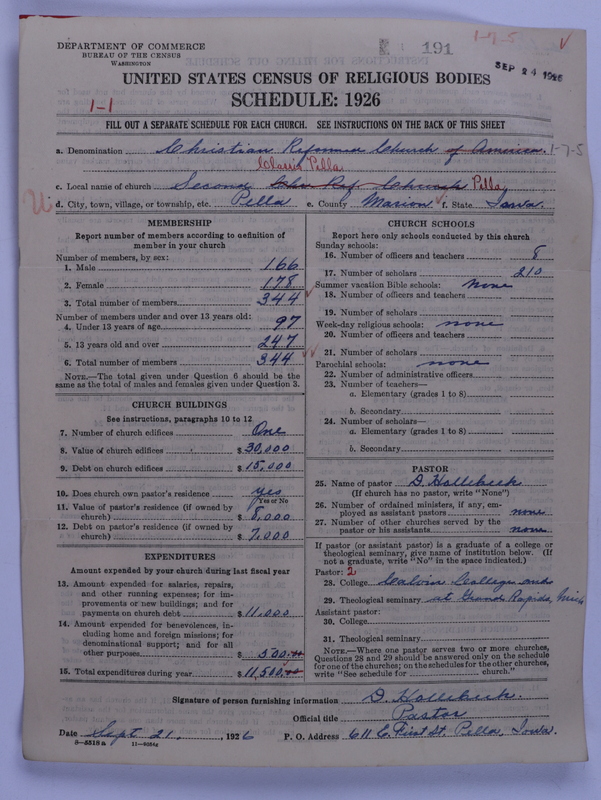 DEPARTMENT OF COMMERCE
BUREAU OF THE CENSUS
WASHINGTON
191
1-7-5
SEP 24 1926
UNITED STATES CENSUS OF RELIGIOUS BODIES
SCHEDULE: 1926
1-1
FILL OUT A SEPARATE SCHEDULE FOR EACH CHURCH. SEE INSTRUCTIONS ON THE BACK OF THIS SHEET
a. Denomination Christian Reformed Church of America. 1-7-5
Classis Pella
c. Local name of church Second Chr. Ref. Church Pella
d. City, town, village, or township, etc. Pella e. County Marion f. State Iowa.
MEMBERSHIP
Report number of members according to definition of
member in your church
Number of members, by sex:
1. Male 166
2. Female 178
3. Total number of members 344
Number of members under and over 13 years old:
4. Under 13 years of age 97
5. 13 years old and over 247
6. Total number of members 344
NOTE.—The total given under Question 6 should be the
same as the total of males and females given under Question 3.
CHURCH BUILDINGS
See instructions, paragraphs 10 to 12
7. Number of church edifices One
8. Value of church edifices $ 30,000
9. Debt on church edifices $ 15,000
10. Does church own pastor's residence yes
Yes or No
11. Value of pastor's residence (if owned by
church) $ 8,000
12. Debt on pastor's residence (if owned by
church) $ 7,000
EXPENDITURES
Amount expended by your church during last fiscal year
13. Amount expended for salaries, repairs,
and other running expenses; for im-
provements or new buildings; and for
payments on church debt $ 11,000
14. Amount expended for benevolences, in-
cluding home and foreign missions; for
denominational support; and for all
other purposes $ 500.00
15. Total expenditures during year $ 11,500.00
CHURCH SCHOOLS
Report here only schools conducted by this church
Sunday schools:
16. Number of officers and teachers 8
17. Number of scholars 210
Summer vacation Bible schools: none
18. Number of officers and teachers
19. Number of scholars
Week-day religious schools: none
20. Number of officers and teachers
21. Number of scholars
Parochial schools: none
22. Number of administrative officers
23. Number of teachers—
a. Elementary (grades 1 to 8)
b. Secondary
24. Number of scholars—
a. Elementary (grades 1 to 8)
b. Secondary
PASTOR
25. Name of pastor D. Hollebeek
(If church has no pastor, write "None")
26. Number of ordained ministers, if any, em-
ployed as assistant pastors none
27. Number of other churches served by the
pastor or his assistants none
If pastor (or assistant pastor) is a graduate of a college or
theological seminary, give name of institution below. (If
not a graduate, write "No" in the space indicated.)
Pastor: 2
28. College Calvin College and
29. Theological seminary at Grand Rapids, Mich
Assistant pastor:
30. College
31. Theological seminary
NOTE.—Where one pastor serves two or more churches,
Questions 28 and 29 should be answered only on the schedule
for one of the churches; on the schedules for the other churches,
write "See schedule for church."
Signature of person furnishing information D. Hollebeek.
Official title Pastor
Date Sept 21, 1926 P. O. Address 611 E. First St. Pella, Iowa.
8-5518 a 11-9064